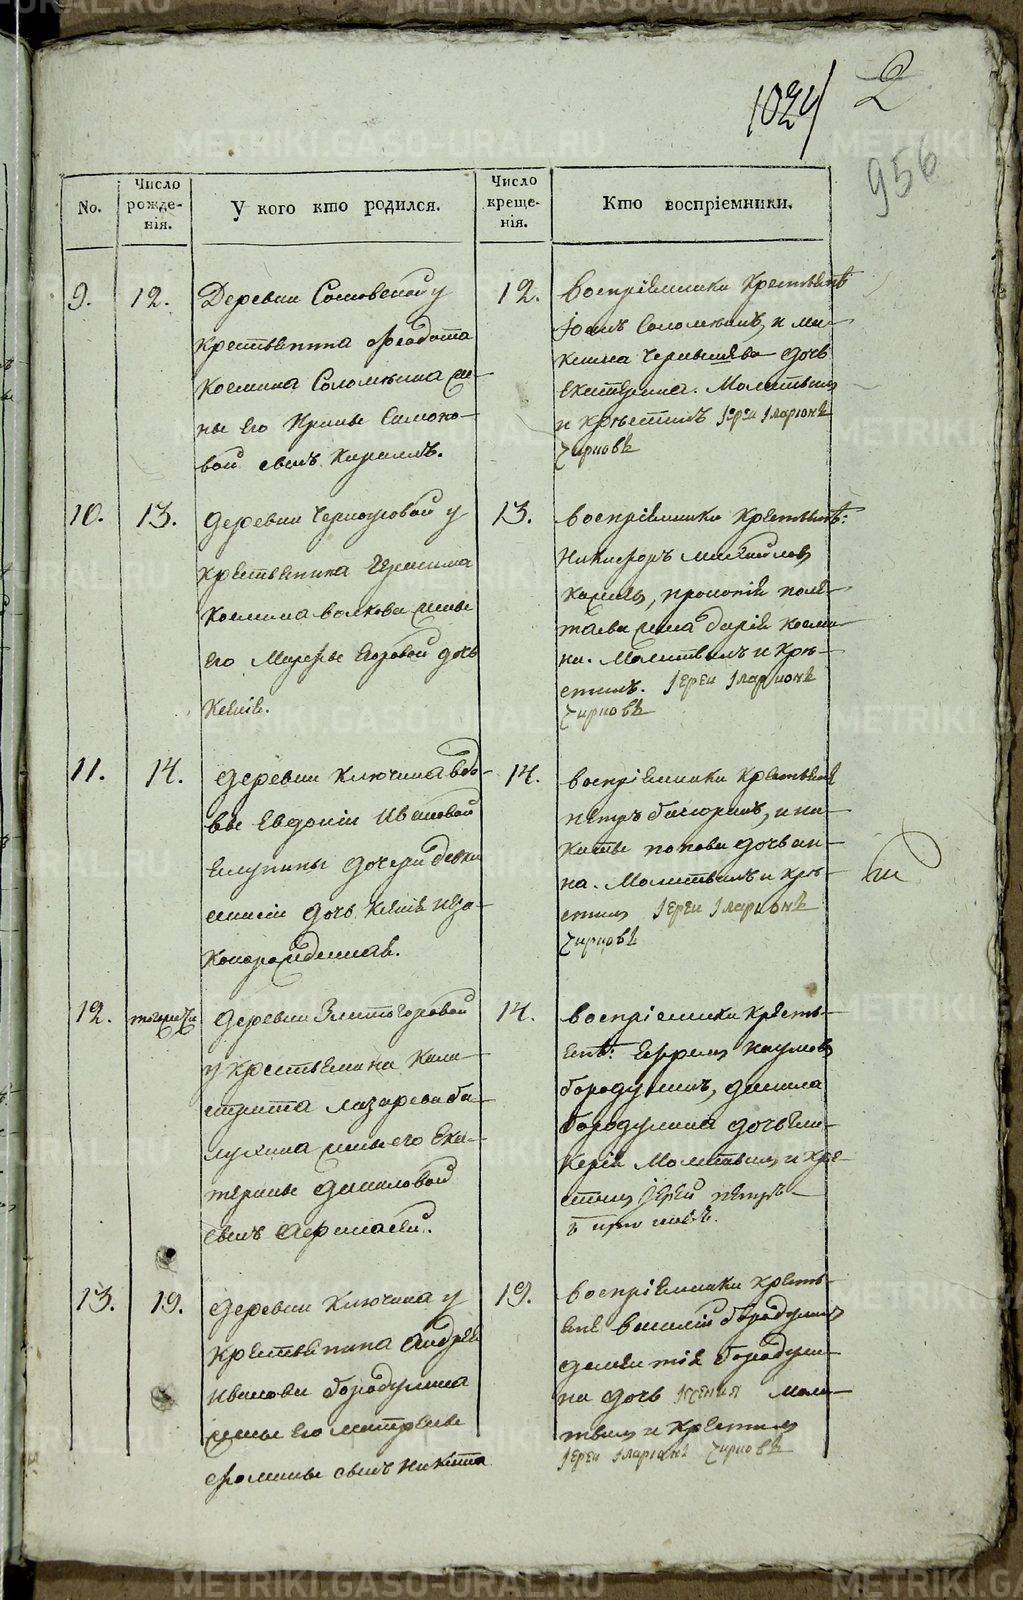 1024
2
956
No.
Число рожде-нія.
У кого кто родился.
Число креще-нія.
Кто воспріемники.
9.
12.
Деревни Сосновской у
крестьянина Феодота
Космина Соломеина же-
ны его Ирины Симоно-
вой сынъ Кириллъ.
12.
Воспріемники крестьяне
Соломеинъ, и Ма-
Чернышева дочь
Екатерина. Молитвилъ
и крестилъ Іереи Іларионъ
Чирковъ
10.
13.
деревни Черноусовой у
крестьянина Герасима
Космина Волкова жены
его Марфы Егоровой дочь
Ксенія.
13.
воспріемники крестьяне:
Никифоръ Михайловъ
Прокопія Поле-
таева жена Дарія Косми-
на. Молитвилъ и кре-
стилъ. Іереи Іларионъ
Чирковъ
11.
14.
деревни Ключика вдо-
вы Евдокіи Ивановой
дочери девки
дочь Ксенія неза-
коннорожденная.
14.
воспріемники крестьяне
Петръ и Ни-
киты Попова дочь Ан-
на. Молитвилъ и кре-
стилъ Іереи Іларионъ
Чирковъ
12.
тогожъ
деревни Златогоровой
у крестьянина Кали-
страта Лазарева Ба-
лухина жены его Ека-
терины Даниловой
сынъ Афанасей.
14.
воспріемники кресть-
яне: Ефремъ Наумовъ
Бородулинъ, Данила
Бородулина дочь Гли-
керія Молитвилъ и кре-
стилъ Іерей Петръ
13.
19.
деревни Ключика у
крестьянина Андрея
Иванова Бородулина
жены его Матрены
Фомины сынъ Никита
19.
воспріемники кресть-
яне Василій Бородулинъ
Бородули-
на дочь Ксения Моли-
твилъ и крестилъ
Іереи Іларионъ Чирковъ
METRIKI.GASO-URAL.RU